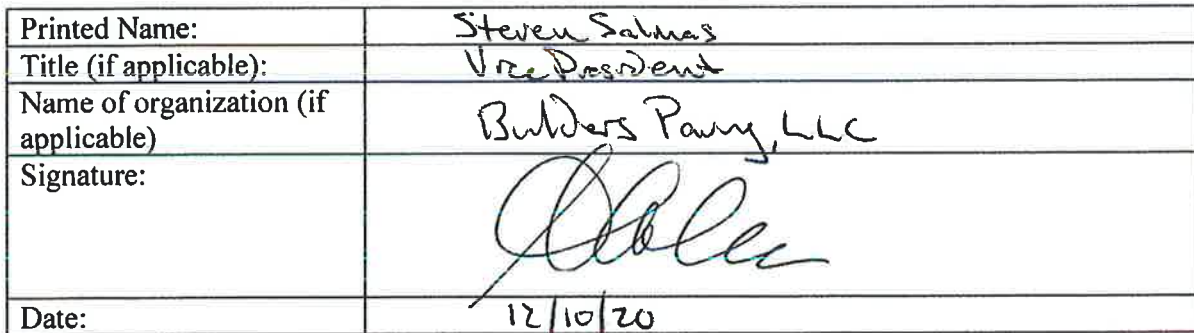 Printed Name: Steven Salmas
Title (if applicable): Vice President
Name of organization (if
applicable) Builders Paving, LLC
Signature:
Date: 12/10/20